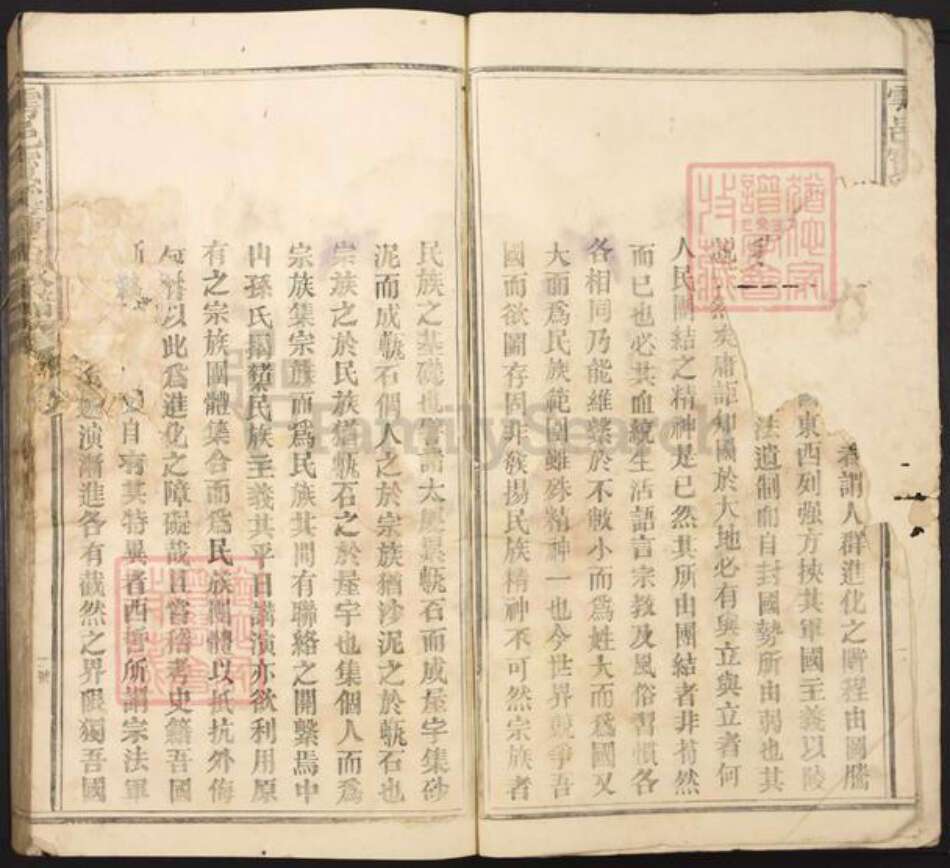 者謂人群進化之階程由圖騰
東西列强方挾其軍國主義以陵
法遺制而自封國勢所由弱也其
然矣庸詎知國於大地必有與立與立者何
人民團結之精神是已然其所由團結者非苟然
而已也必其血統生活語言宗教及風俗習慣各
各相同乃能維繫於不敝小而爲姓大而爲國又
大而爲民族範圍雖殊精神一也今世界競爭吾
國而欲圖存固非發揚民族精神不可然宗族者
民族之基礎也嘗謂大厦累甎石而成屋宇集砂
泥而成甎石個人之於宗族猶沙泥之於甎石也
宗族之於民族猶甎石之於屋宇也集個人而爲
宗族集宗族而爲民族其間有聯絡之關繫焉中
山孫氏闢民族主義其平日講演亦欲利用原
有之宗族團體集合而爲民族團體以抵抗外侮
以此爲進化之障礙哉且嘗稽考史籍吾國
自有其特異者西哲所謂宗法軍
遞演漸進各有截然之界限獨吾國
一號
FamilySearch